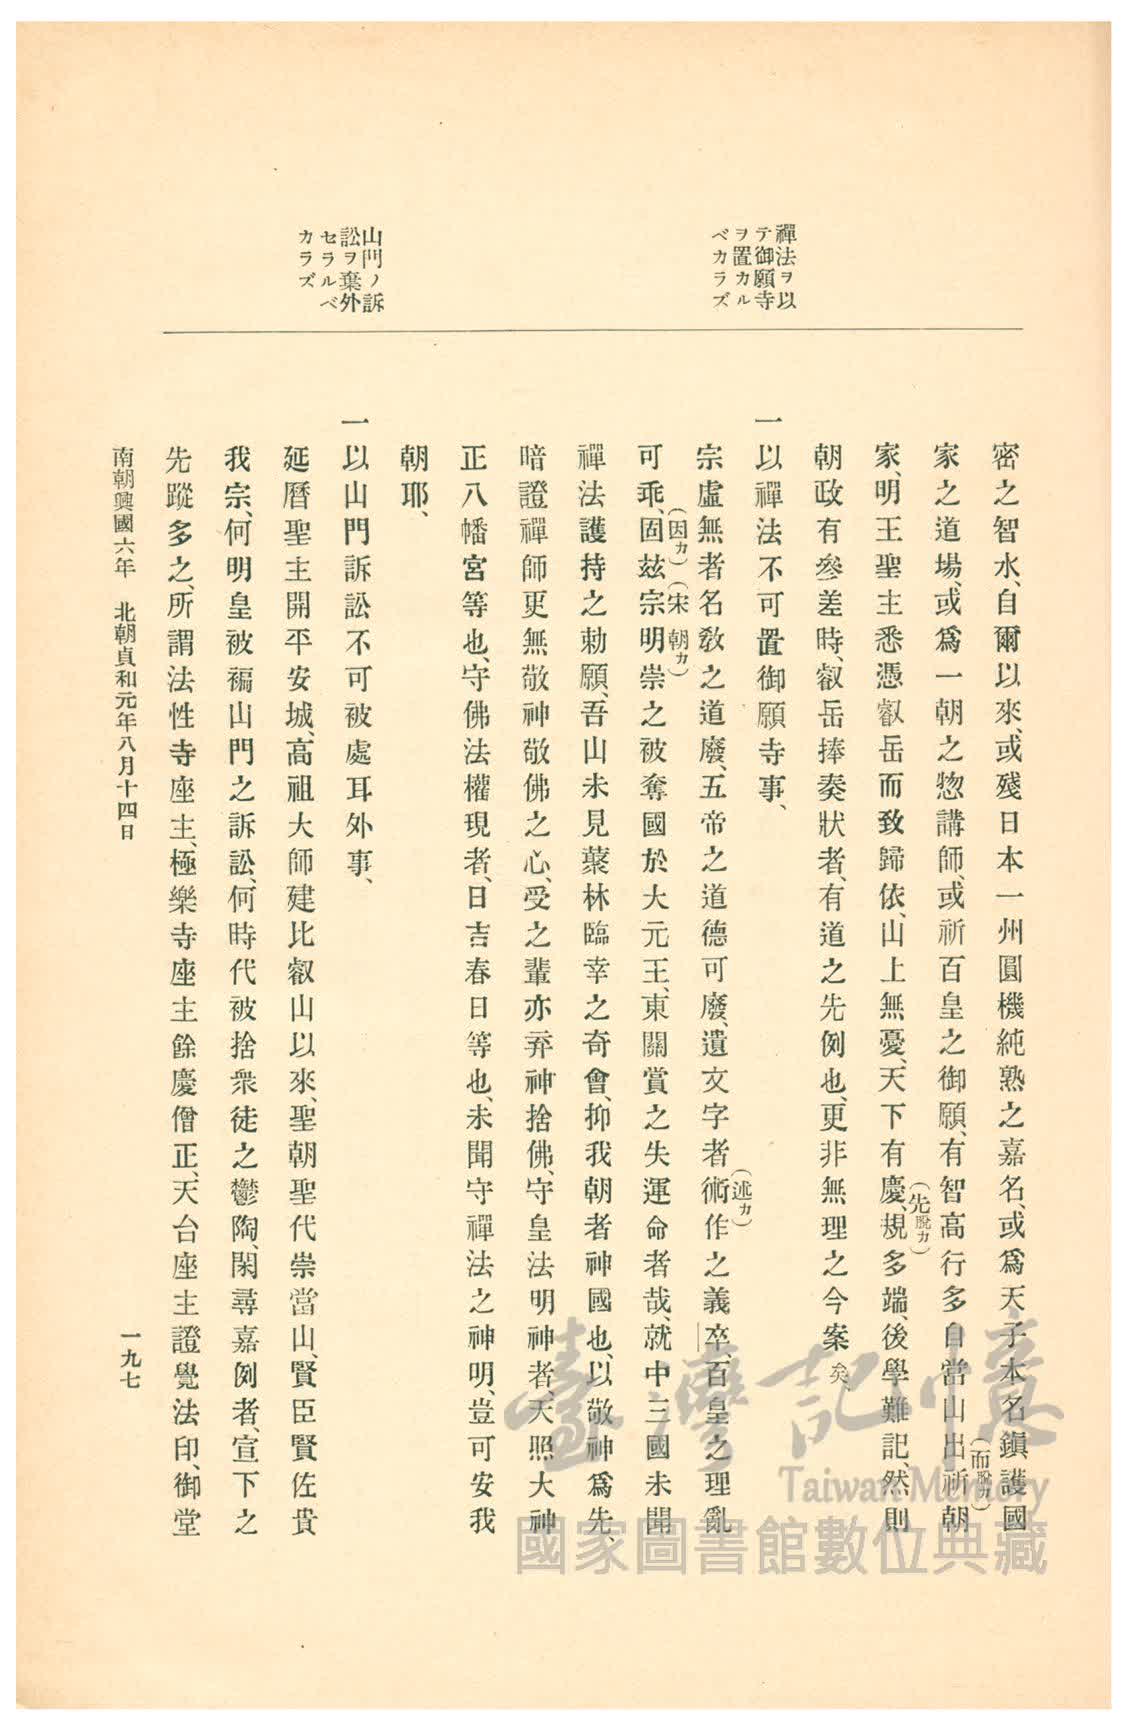 禪法ヲ以
テ御願寺
ヲ置カル
ベカラズ
山門ノ訴
訟ヲ棄外
セラルベ
カラズ
密之智水、自爾以來、或殘日本一州圓機純熟之嘉名、或爲天子本名鎭護國
家之道場、或爲一朝之惣講師、或祈百皇之御願、有智高行多自當山出(而脫カ)祈朝
家、明王聖主悉憑叡岳而致歸依、山上無憂、天下有慶、(先脫カ)規多端、後學難記、然則
朝政有參差時、叡岳捧奏狀者、有道之先例也、更非無理之今案矣、
一以禪法不可置御願寺事、
宗虛無者名敎之道廢、五帝之道德可廢、遺文字者術(述カ)作之義卒、百皇之理亂
可乖、固(因カ)玆宗明(宋朝カ)崇之被奪國於大元王、東關賞之失運命者哉、就中三國未聞
禪法護持之勅願、吾山未見藂林臨幸之奇會、抑我朝者神國也、以敬神爲先、
暗證禪師更無敬神敬佛之心、受之輩亦弃神捨佛、守皇法明神者、天照大神
正八幡宮等也、守佛法權現者、日吉春日等也、未聞守禪法之神明、豈可安我
朝耶、
一以山門訴訟不可被處耳外事、
延曆聖主開平安城、高祖大師建比叡山以來、聖朝聖代崇當山、賢臣賢佐貴
我宗、何明皇被褊山門之訴訟、何時代被捨衆徒之鬱陶、閑尋嘉例者、宣下之
先蹤多之、所謂法性寺座主、極樂寺座主餘慶僧正、天台座主證覺法印、御堂
南朝興國六年　北朝貞和元年八月十四日
一九七
臺灣記憶
Taiwan Memory
國家圖書館數位典藏